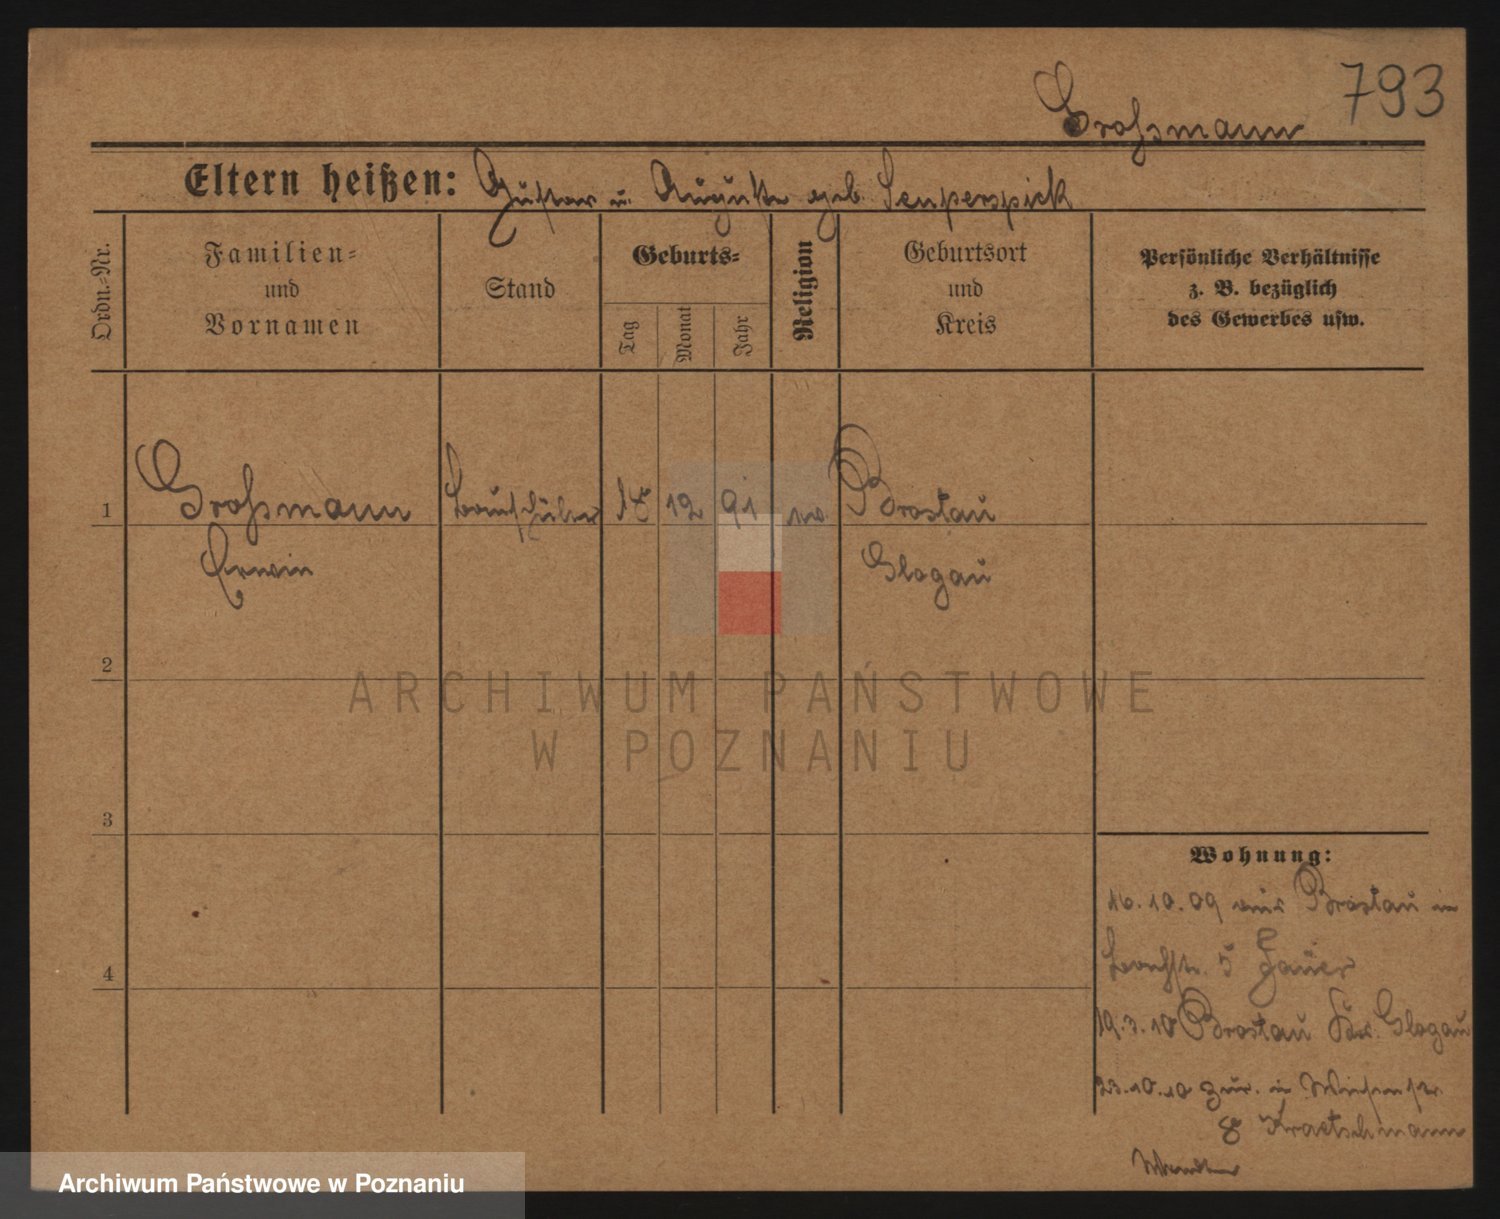 793
Großmann
Eltern heißen: Gustav u. Auguste geb.
Ordn.-Nr.
Familien-
und
Vornamen
Stand
Geburts-
Tag
Monat
Jahr
Religion
Geburtsort
und
Kreis
Persönliche Verhältnisse
z. B. bezüglich
des Gewerbes usw.
1
Großmann
Bauschüler
18
12
91
ev.
Brostau
Erwin
Glogau
2
ARCHIWUM PAŃSTWOWE
W POZNANIU
3
Wohnung:
16.10.09 aus Brostau in
5 Jauer
4
19.3.10 Brostau Kr. Glogau
23.10.10 zur. in Wiesenstr.
8 Kraetschmann
Wenden
Archiwum Państwowe w Poznaniu